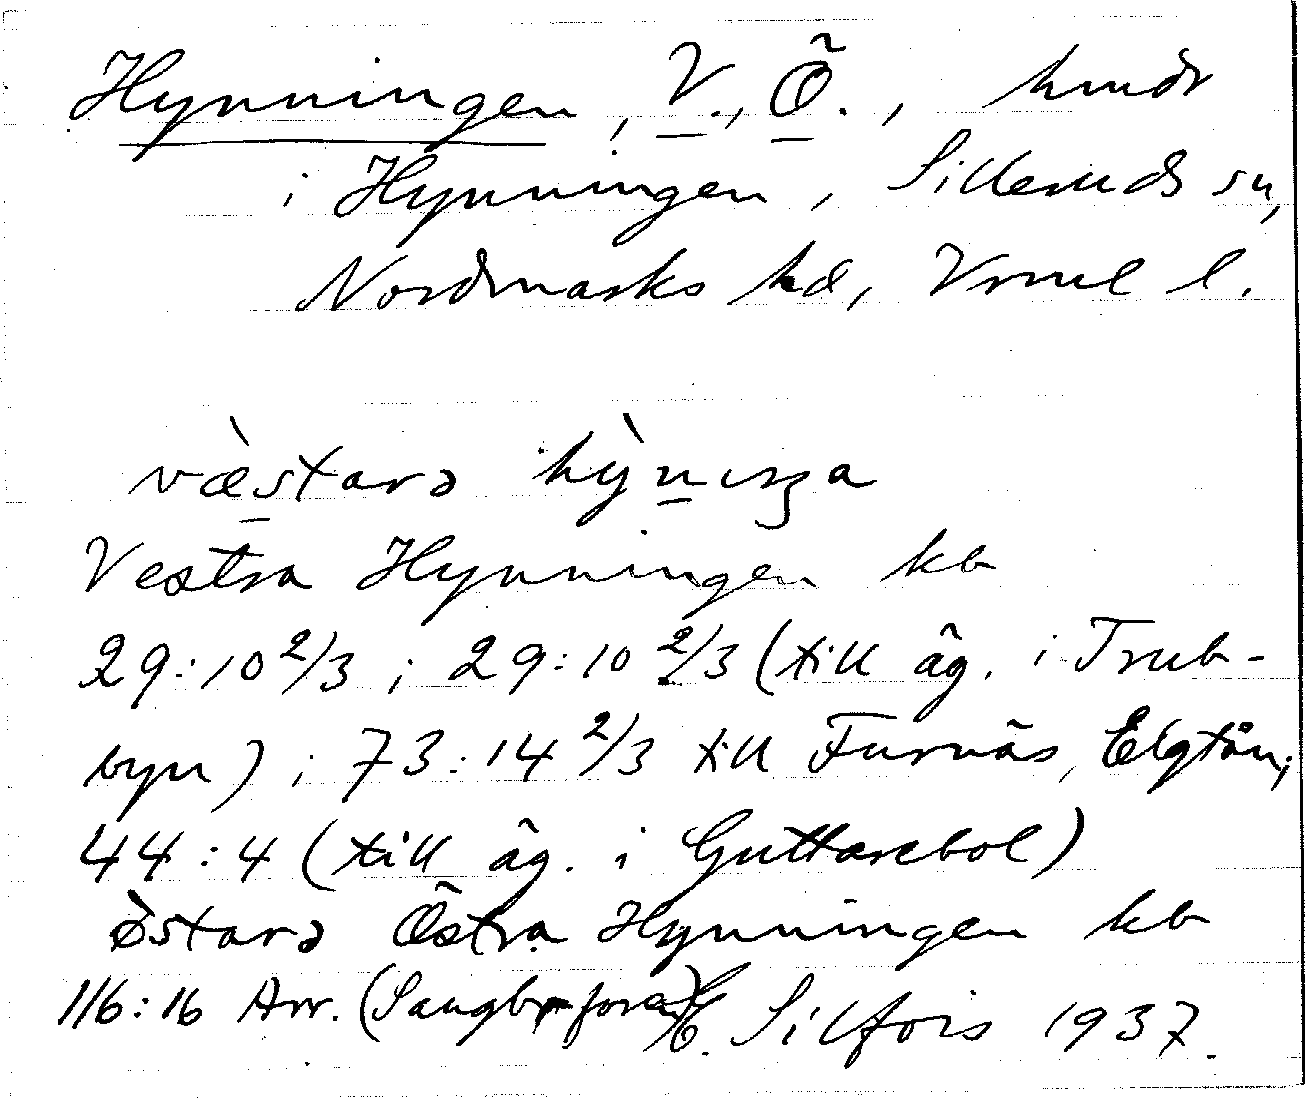 Hynningen, V., Ö., hmdr
i Hynningen, Silleruds sn,
Nordmarks hd, Vrml l.
væstarə hỳnıŋa
Vestra Hynningen kb
29:10 2/3; 29:10 2/3 (till äg. i Trub-
byn); 73:14 2/3 till Furnäs, Elgtån;
44:4 (till äg. i Guttarebol)
östarə Östra Hynningen kb
116:16 Arr. E. Silfors 1937.